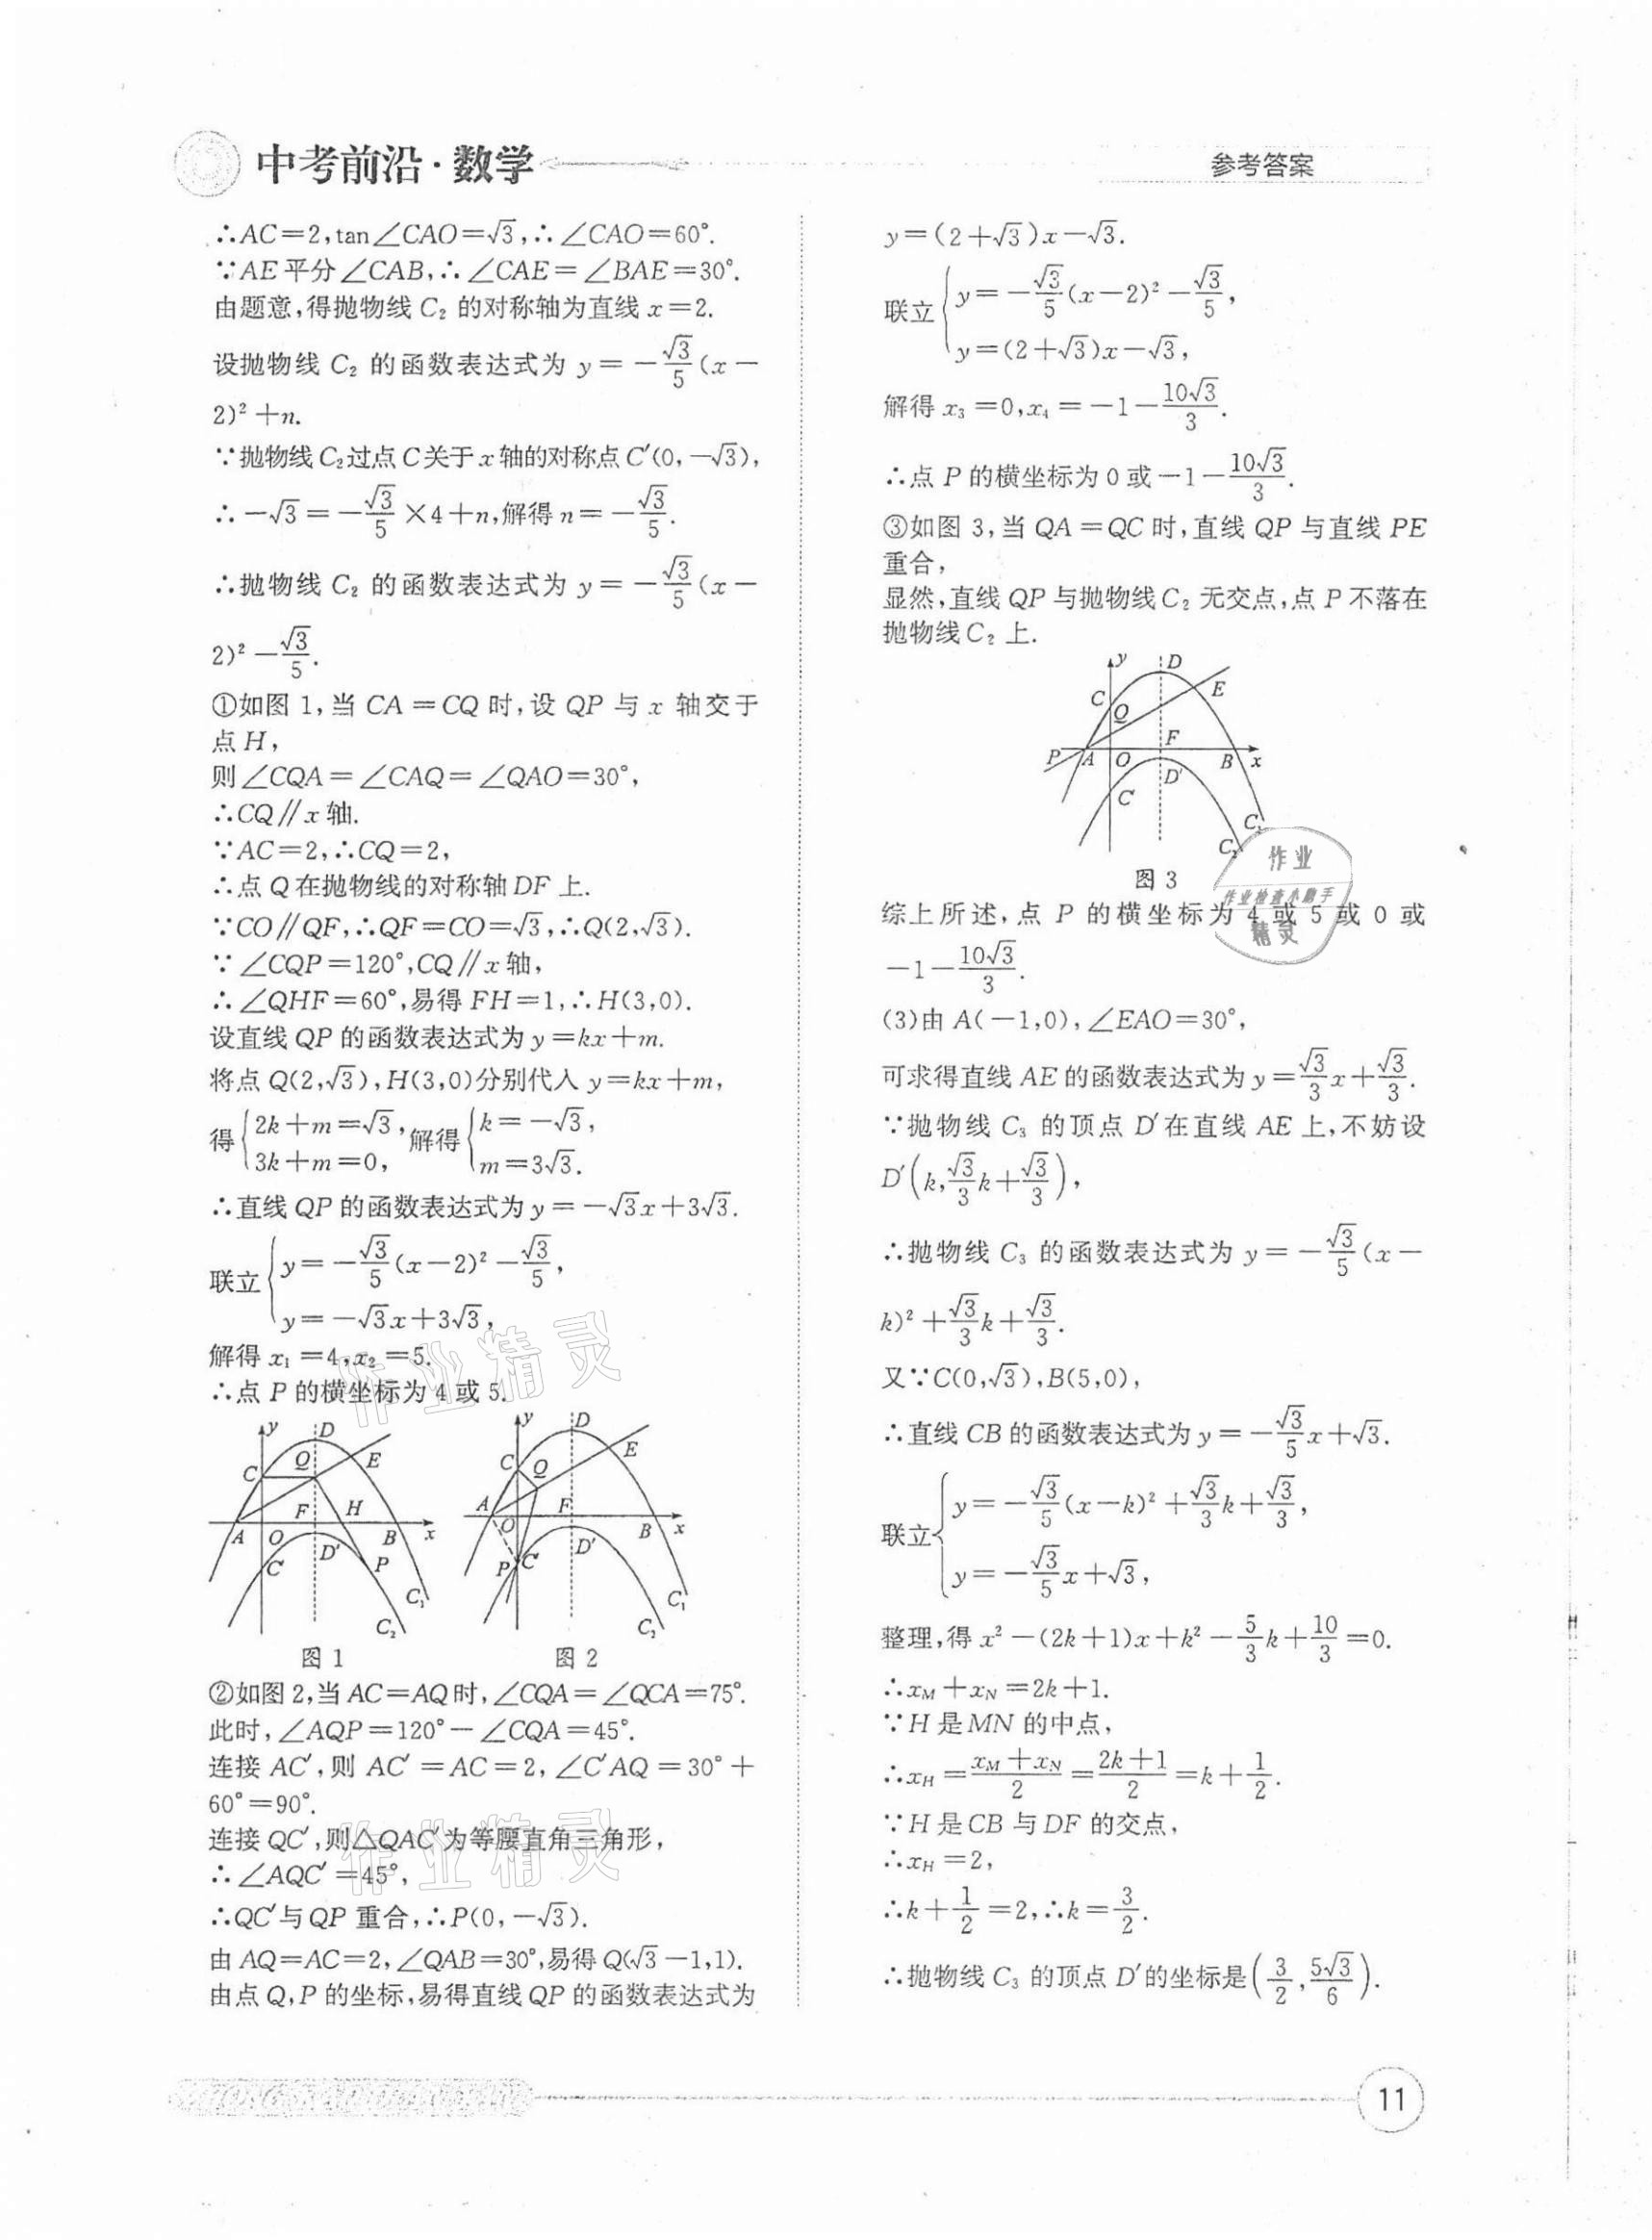 中考前沿·数学
参考答案
∴AC=2,tan∠CAO=√3,∴∠CAO=60°.
∵AE平分∠CAB,∴∠CAE=∠BAE=30°.
由题意,得抛物线C₂的对称轴为直线x=2.
设抛物线 C₂ 的函数表达式为 y=-√3/5(x-
2)²+n.
∵抛物线C₂过点C关于x轴的对称点C′(0,-√3),
∴-√3=-√3/5×4+n,解得n=-√3/5.
∴抛物线 C₂ 的函数表达式为 y=-√3/5(x-
2)²-√3/5.
①如图1,当 CA=CQ 时,设 QP 与 x 轴交于
点H,
则∠CQA=∠CAQ=∠QAO=30°,
∴CQ∥x轴.
∵AC=2,∴CQ=2,
∴点Q在抛物线的对称轴DF上.
∵CO∥QF,∴QF=CO=√3,∴Q(2,√3).
∵∠CQP=120°,CQ∥x轴,
∴∠QHF=60°,易得FH=1,∴H(3,0).
设直线QP的函数表达式为y=kx+m.
将点Q(2,√3),H(3,0)分别代入y=kx+m,
得{2k+m=√3, 3k+m=0, 解得{k=-√3, m=3√3.
∴直线QP的函数表达式为y=-√3x+3√3.
联立{y=-√3/5(x-2)²-√3/5,
y=-√3x+3√3,
解得x₁=4,x₂=5.
∴点P的横坐标为4或5.
y D C Q E F H A O B x C′ D′ P C₁ C₂
图1
y D C Q E A O F B x P C′ D′ C₁ C₂
图2
②如图2,当AC=AQ时,∠CQA=∠QCA=75°.
此时,∠AQP=120°-∠CQA=45°.
连接 AC′,则 AC′=AC=2,∠C′AQ=30°+
60°=90°.
连接QC′,则△QAC′为等腰直角三角形,
∴∠AQC′=45°,
∴QC′与QP重合,∴P(0,-√3).
由AQ=AC=2,∠QAB=30°,易得Q(√3-1,1).
由点Q,P的坐标,易得直线QP的函数表达式为
y=(2+√3)x-√3.
联立{y=-√3/5(x-2)²-√3/5,
y=(2+√3)x-√3,
解得x₃=0,x₄=-1-10√3/3.
∴点P的横坐标为0或-1-10√3/3.
③如图3,当QA=QC时,直线QP与直线PE
重合,
显然,直线QP与抛物线C₂无交点,点P不落在
抛物线C₂上.
y D C Q E P A O F B x C′ D′ C₁ C₂
图3
综上所述,点 P 的横坐标为 4 或 5 或 0 或
-1-10√3/3.
(3)由A(-1,0),∠EAO=30°,
可求得直线AE的函数表达式为y=√3/3x+√3/3.
∵抛物线 C₃ 的顶点 D′在直线 AE 上,不妨设
D′(k,√3/3k+√3/3),
∴抛物线 C₃ 的函数表达式为 y=-√3/5(x-
k)²+√3/3k+√3/3.
又∵C(0,√3),B(5,0),
∴直线CB的函数表达式为y=-√3/5x+√3.
联立{y=-√3/5(x-k)²+√3/3k+√3/3,
y=-√3/5x+√3,
整理,得x²-(2k+1)x+k²-5/3k+10/3=0.
∴x_M+x_N=2k+1.
∵H是MN的中点,
∴x_H=(x_M+x_N)/2=(2k+1)/2=k+1/2.
∵H是CB与DF的交点,
∴x_H=2,
∴k+1/2=2,∴k=3/2.
∴抛物线C₃的顶点D′的坐标是(3/2,5√3/6).
作业
作业检查小助手
精灵
作业精灵
作业精灵
11